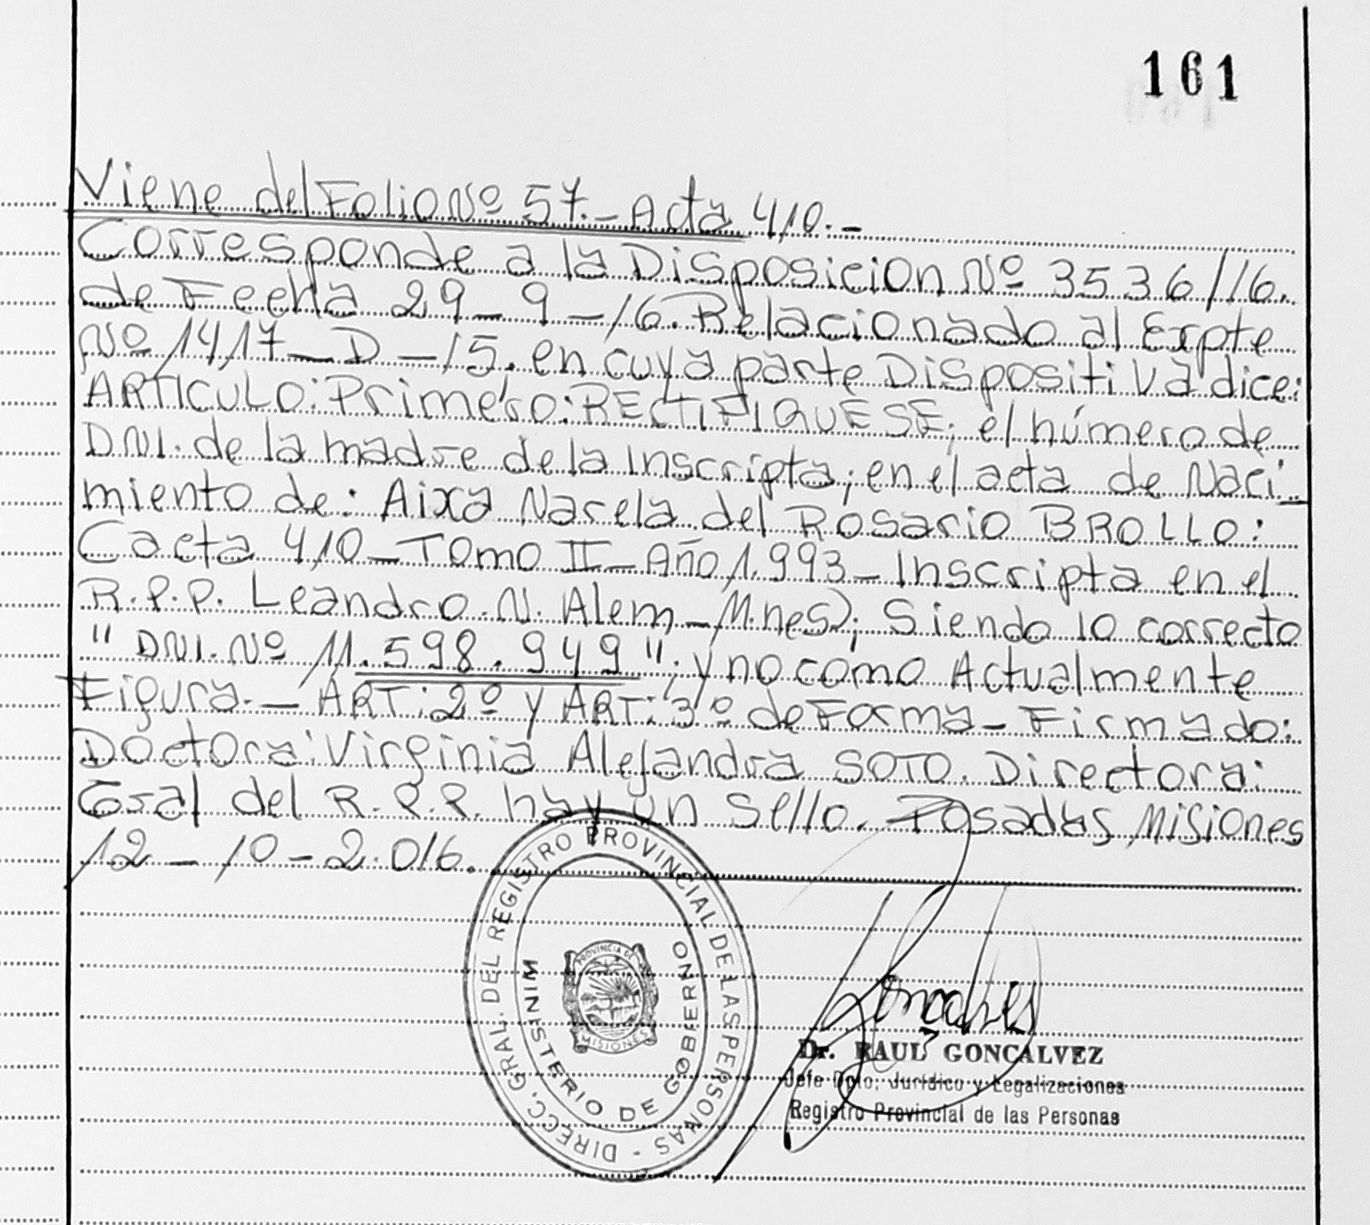 161
Viene del Folio Nº 57.- Acta 410.-
Corresponde a la Disposicion Nº 3536/16.
de Fecha 29-9-16. Relacionado al Expte
Nº 1417-D-15. en cuya parte Dispositiva dice:
ARTICULO: Primero: RECTIFIQUESE; el número de
DNI. de la madre de la Inscripta; en el acta de Naci-
miento de: Aixa Narela del Rosario BROLLO:
(acta 410-Tomo II-Año 1.993-Inscripta en el
R.P.P. Leandro.N. Alem-Mnes); Siendo lo correcto
"DNI. Nº 11.598.949"; y no como Actualmente
Figura.- ART: 2º y ART: 3º de Forma- Firmado:
Doctora: Virginia Alejandra SOTO. Directora:
Gral del R.P.P. hay un sello. Posadas, Misiones
12-10-2.016.
DIRECC. GRAL. DEL REGISTRO PROVINCIAL DE LAS PERSONAS -
MINISTERIO DE GOBIERNO
PROVINCIA DE
MISIONES
Goncalves
Dr. RAUL GONCALVEZ
Jefe Dpto. Jurídico y Legalizaciones
Registro Provincial de las Personas